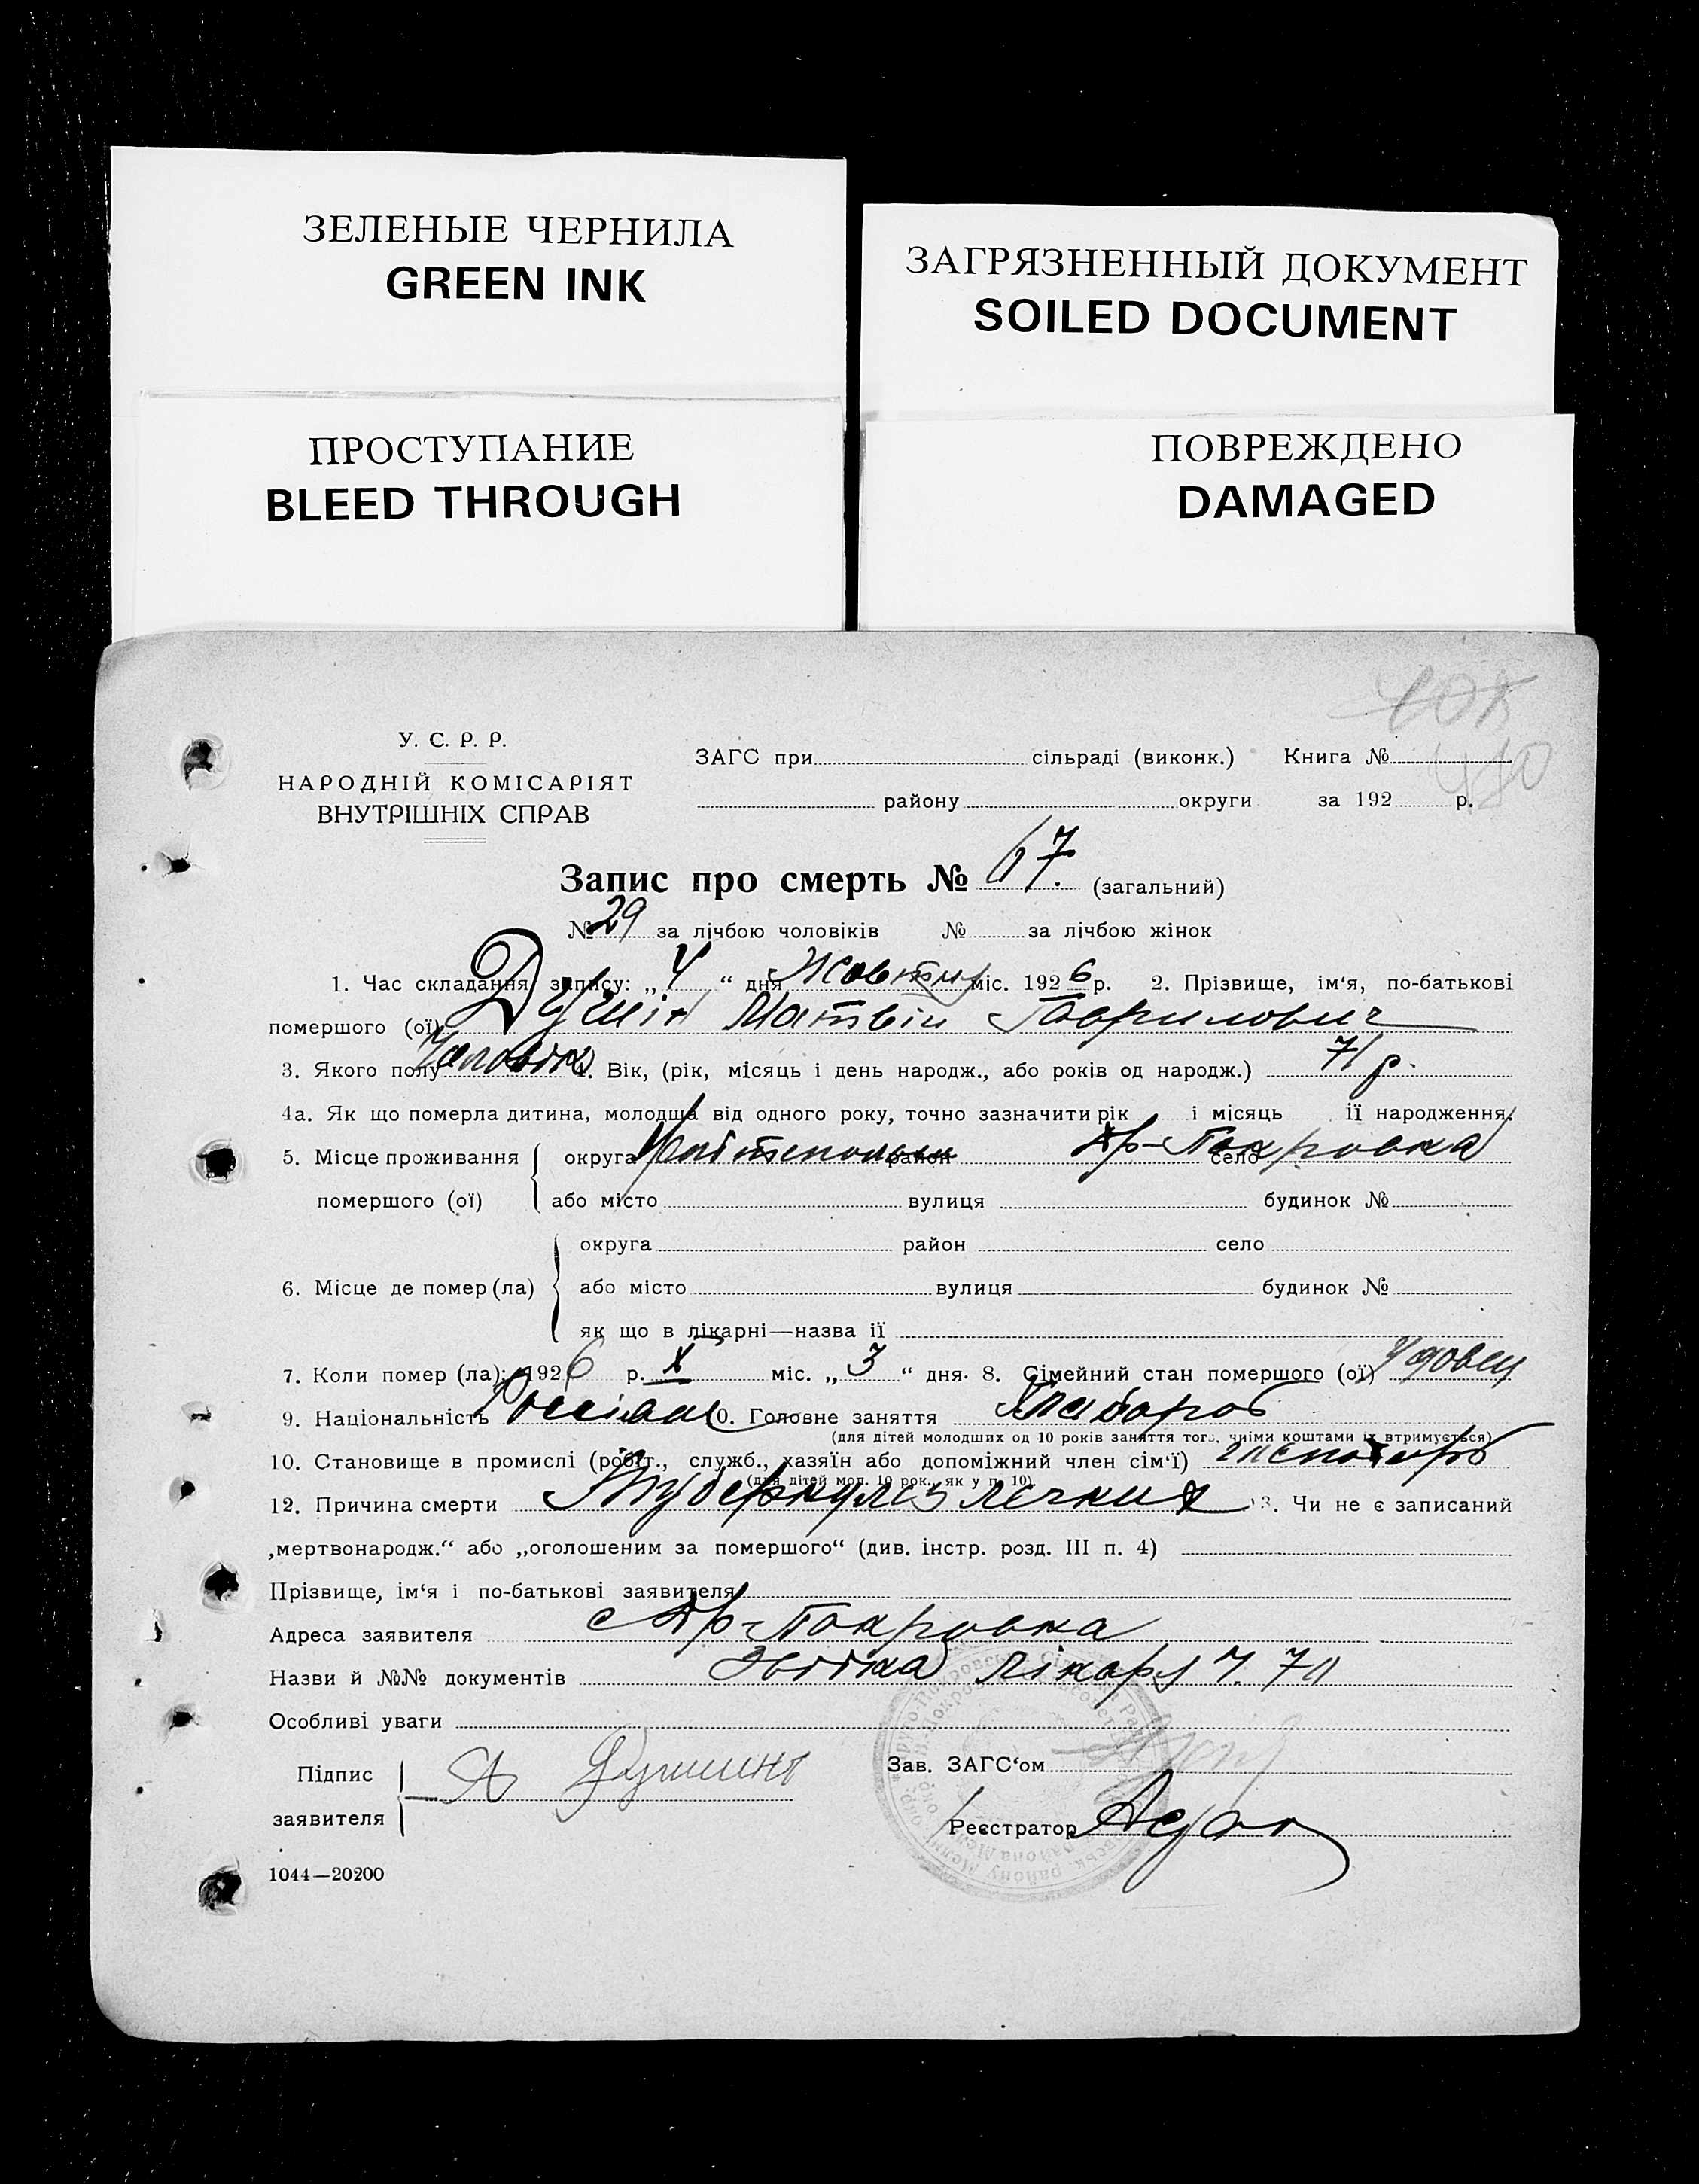 ЗЕЛЕНЫЕ ЧЕРНИЛА
GREEN INK
ЗАГРЯЗНЕННЫЙ ДОКУМЕНТ
SOILED DOCUMENT
ПРОСТУПАНИЕ
BLEED THROUGH
ПОВРЕЖДЕНО
DAMAGED
У. С. Р. Р.
НАРОДНІЙ КОМІСАРІЯТ
ВНУТРІШНІХ СПРАВ
ЗАГС при сільраді (виконк.) Книга №
району округи за 192 р.
Запис про смерть № 67. (загальний)
№ 29 за лічбою чоловіків № за лічбою жінок
1. Час складання запису: „ 4 “ дня Жовтня міс. 1926 р. 2. Прізвище, ім‘я, по-батькові
помершого (ої) Душін Матвій Гаврилович
3. Якого полу Чоловік 4. Вік, (рік, місяць і день народж., або років од народж.) 71 р.
4а. Як що померла дитина, молодша від одного року, точно зазначити рік і місяць її народження.
5. Місце проживання помершого (ої) округа район село Кр-Покровка
або місто вулиця будинок №
6. Місце де помер (ла) округа район село
або місто вулиця будинок №
як що в лікарні—назва її
7. Коли помер (ла): 1926 р. X міс. „ 3 “ дня. 8. Сімейний стан помершого (ої) Удовец
9. Національність 10. Головне заняття Хлебороб
(для дітей молодших од 10 років заняття того, чиїми коштами їх втримується)
10. Становище в промислі (робіт., служб., хазяїн або допоміжний член сім‘ї)
(для дітей мол. 10 рок., як у п. 10)
12. Причина смерти Туберкулез легких 13. Чи не є записаний
„мертвонародж.“ або „оголошеним за помершого“ (див. інстр. розд. III п. 4)
Прізвище, ім‘я і по-батькові заявителя
Адреса заявителя с Кр-Покровка
Назви й №№ документів Звістка лікаря
Особливі уваги
Підпис заявителя Душинъ
Зав. ЗАГС‘ом
Реєстратор
1044—20200